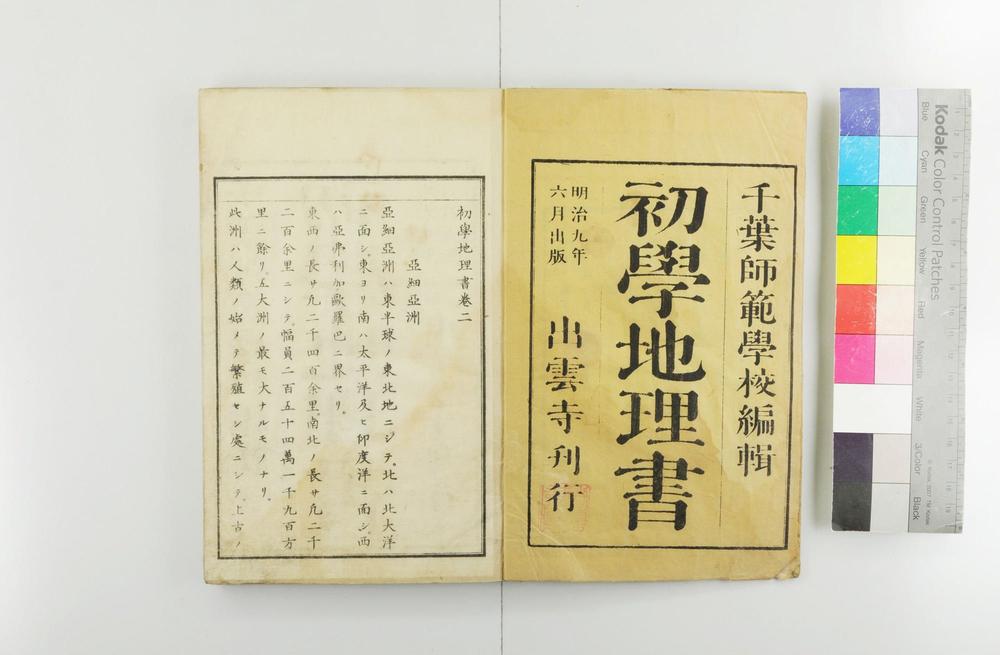 千葉師範學校編輯
初學地理書
明治九年
六月出版
出雲寺刊行
初學地理書卷二
亞細亞洲
亞細亞洲ハ東半球ノ東北地ニシテ。北ハ北大洋
ニ面シ。東ヨリ南ハ太平洋及ヒ印度洋ニ面シ。西
ハ亞弗利加歐羅巴ニ界セリ。
東西ノ長サ凢二千四百余里。南北ノ長サ凢二千
二百余里ニシテ。幅員二百五十四萬一千九百方
里ニ餘リ。五大洲ノ最モ大ナルモノナリ。
此洲ハ人類ノ始メテ繁殖セシ處ニシテ。上古ノ
Kodak Color Control Patches
Blue
Cyan
Green
Yellow
Red
Magenta
White
3/Color
Black